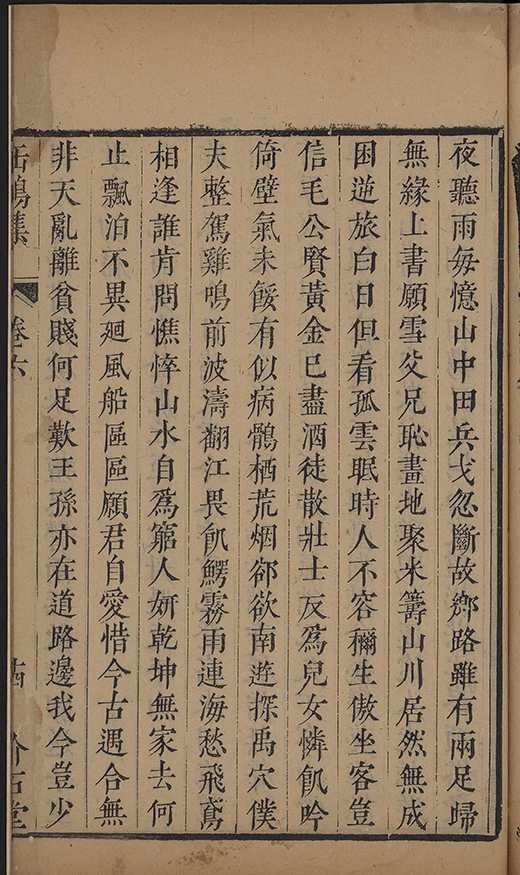 夜聽雨每憶山中田兵戈忽斷故鄉路雖有兩足歸
無緣上書願雪父兄恥畫地聚米籌山川居然無成
困逆旅白日但看孤雲眠時人不容禰生傲坐客豈
信毛公賢黃金已盡酒徒散壯士反爲兒女憐飢吟
倚壁氣未餒有似病鶻栖荒烟郤欲南遊探禹穴僕
夫整駕雞鳴前波濤翻江畏飢鰐霧雨連海愁飛鳶
相逢誰肯問憔悴山水自爲窮人妍乾坤無家去何
止飄泊不異廻風船區區願君自愛惜今古遇合無
非天亂離貧賤何足歎王孫亦在道路邊我今豈少
卷六